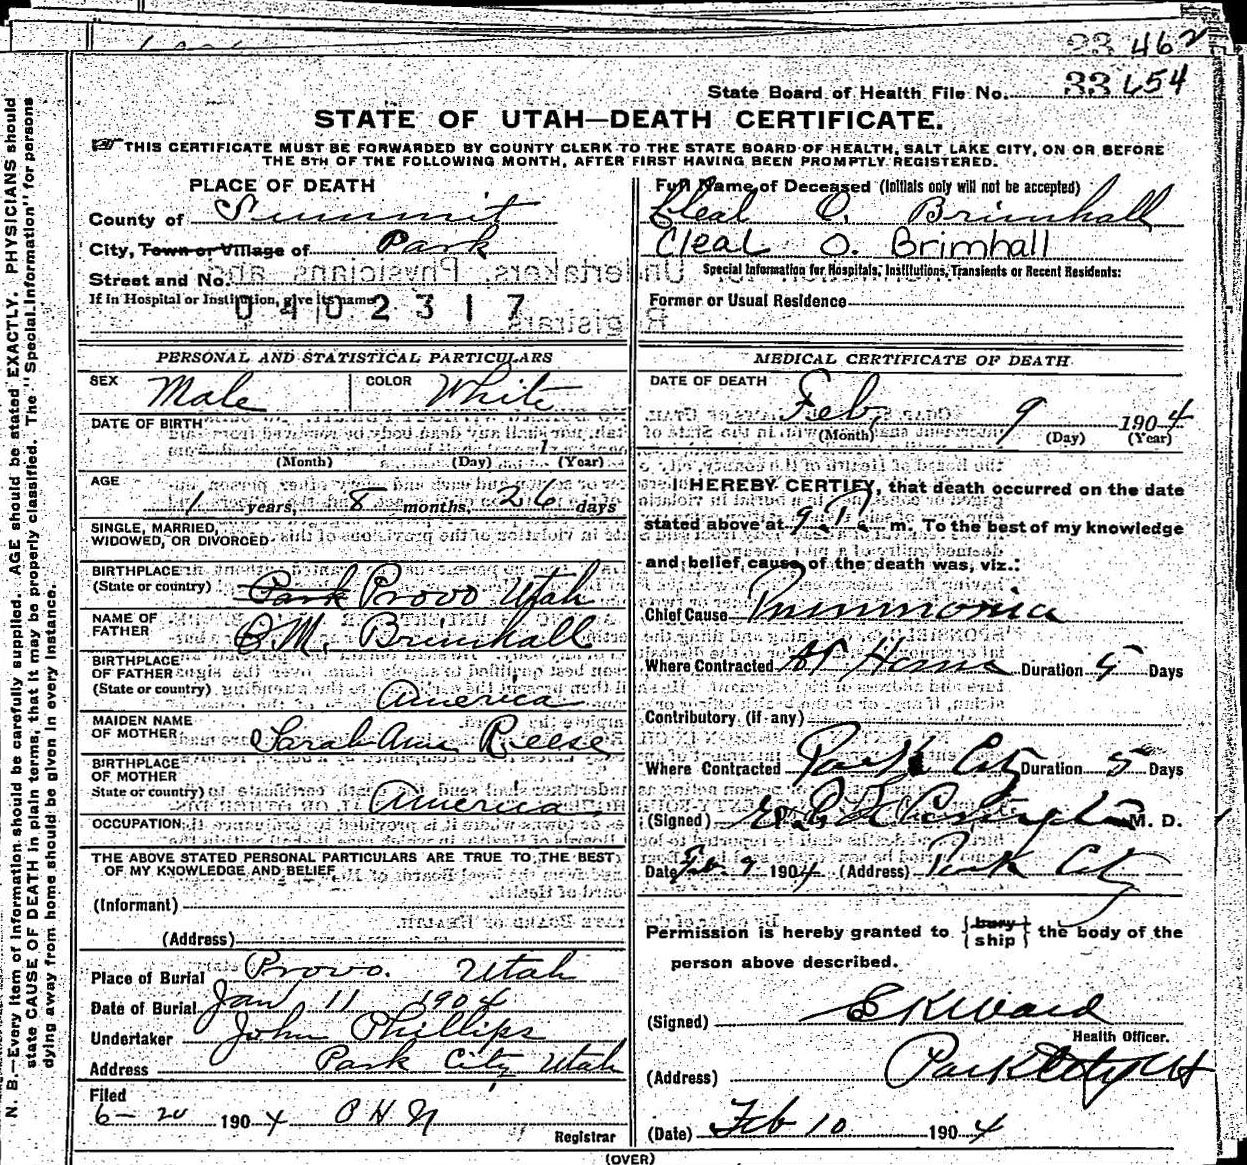 23 462
State Board of Health File No. 33 654
STATE OF UTAH—DEATH CERTIFICATE.
THIS CERTIFICATE MUST BE FORWARDED BY COUNTY CLERK TO THE STATE BOARD OF HEALTH, SALT LAKE CITY, ON OR BEFORE
THE 5TH OF THE FOLLOWING MONTH, AFTER FIRST HAVING BEEN PROMPTLY REGISTERED.
PLACE OF DEATH
County of Summit
City, Town or Village of Park
Street and No.
If in Hospital or Institution, give its name
0402317
Full Name of Deceased (Initials only will not be accepted)
Cleal O. Brimhall
Cleal O. Brimhall
Special Information for Hospitals, Institutions, Transients or Recent Residents:
Former or Usual Residence
PERSONAL AND STATISTICAL PARTICULARS
SEX Male COLOR White
DATE OF BIRTH
(Month) (Day) (Year)
AGE
1 years, 8 months, 26 days
SINGLE, MARRIED,
WIDOWED, OR DIVORCED
BIRTHPLACE
(State or country) Park Provo Utah
NAME OF
FATHER Brimhall
BIRTHPLACE
OF FATHER
(State or country) America
MAIDEN NAME
OF MOTHER Sarah Ann Reese
BIRTHPLACE
OF MOTHER
State or country) America
OCCUPATION
THE ABOVE STATED PERSONAL PARTICULARS ARE TRUE TO THE BEST
OF MY KNOWLEDGE AND BELIEF
(Informant)
(Address)
Place of Burial Provo. Utah
Date of Burial Jan 11 1904
Undertaker John Phillips
Address Park City Utah
Filed
6-20 1904
Registrar
MEDICAL CERTIFICATE OF DEATH
DATE OF DEATH
Feb 9 1904
(Month) (Day) (Year)
I HEREBY CERTIFY, that death occurred on the date
stated above at 9 P. m. To the best of my knowledge
and belief, cause of the death was, viz.:
Chief Cause Pnimmonia
Where Contracted At Home Duration 5 Days
Contributory (if any)
Where Contracted Park City Duration 5 Days
(Signed) M. D.
Date Feb. 9 1904 (Address) Park City
Permission is hereby granted to {bury ship} the body of the
person above described.
(Signed) E K Ward
Health Officer.
(Address) Park City Ut
(Date) Feb 10 1904
(OVER)
N. B.—Every item of information should be carefully supplied. AGE should be stated EXACTLY. PHYSICIANS should
state CAUSE OF DEATH in plain terms, that it may be properly classified. The "Special Information" for persons
dying away from home should be given in every instance.